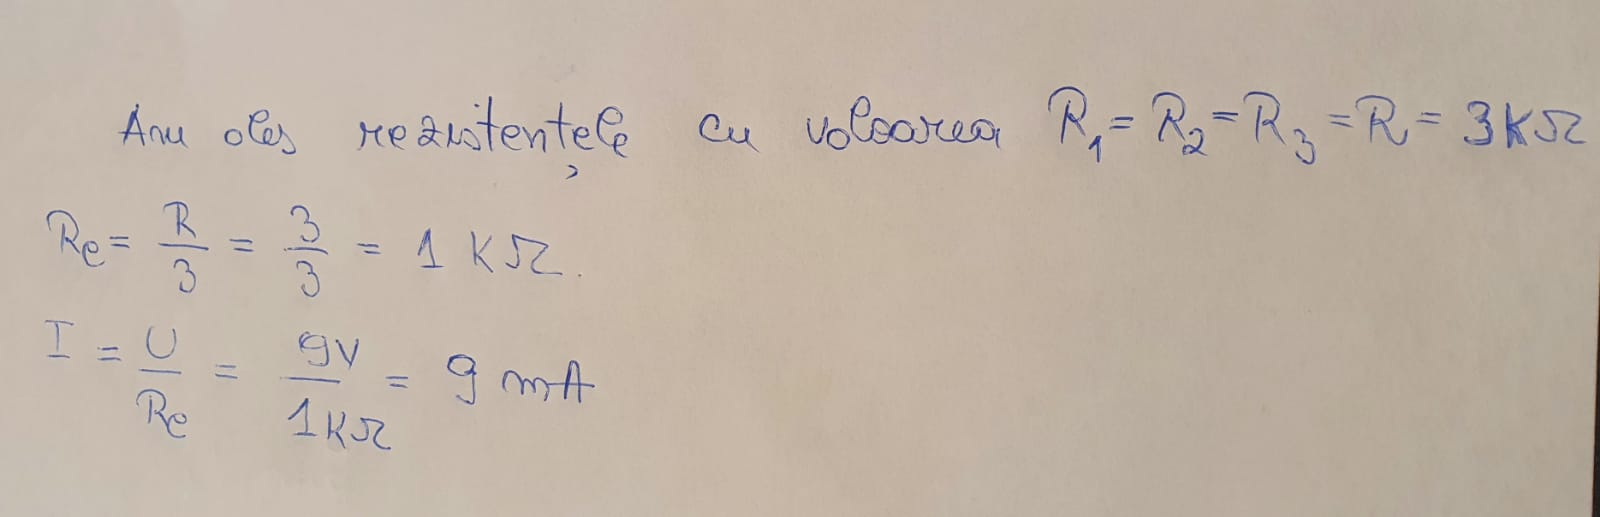 Am ales rezistențele cu valoarea R₁ = R₂ = R₃ = R = 3 KΩ
Re = R/3 = 3/3 = 1 KΩ.
I = U/Re = 9V/1KΩ = 9 mA